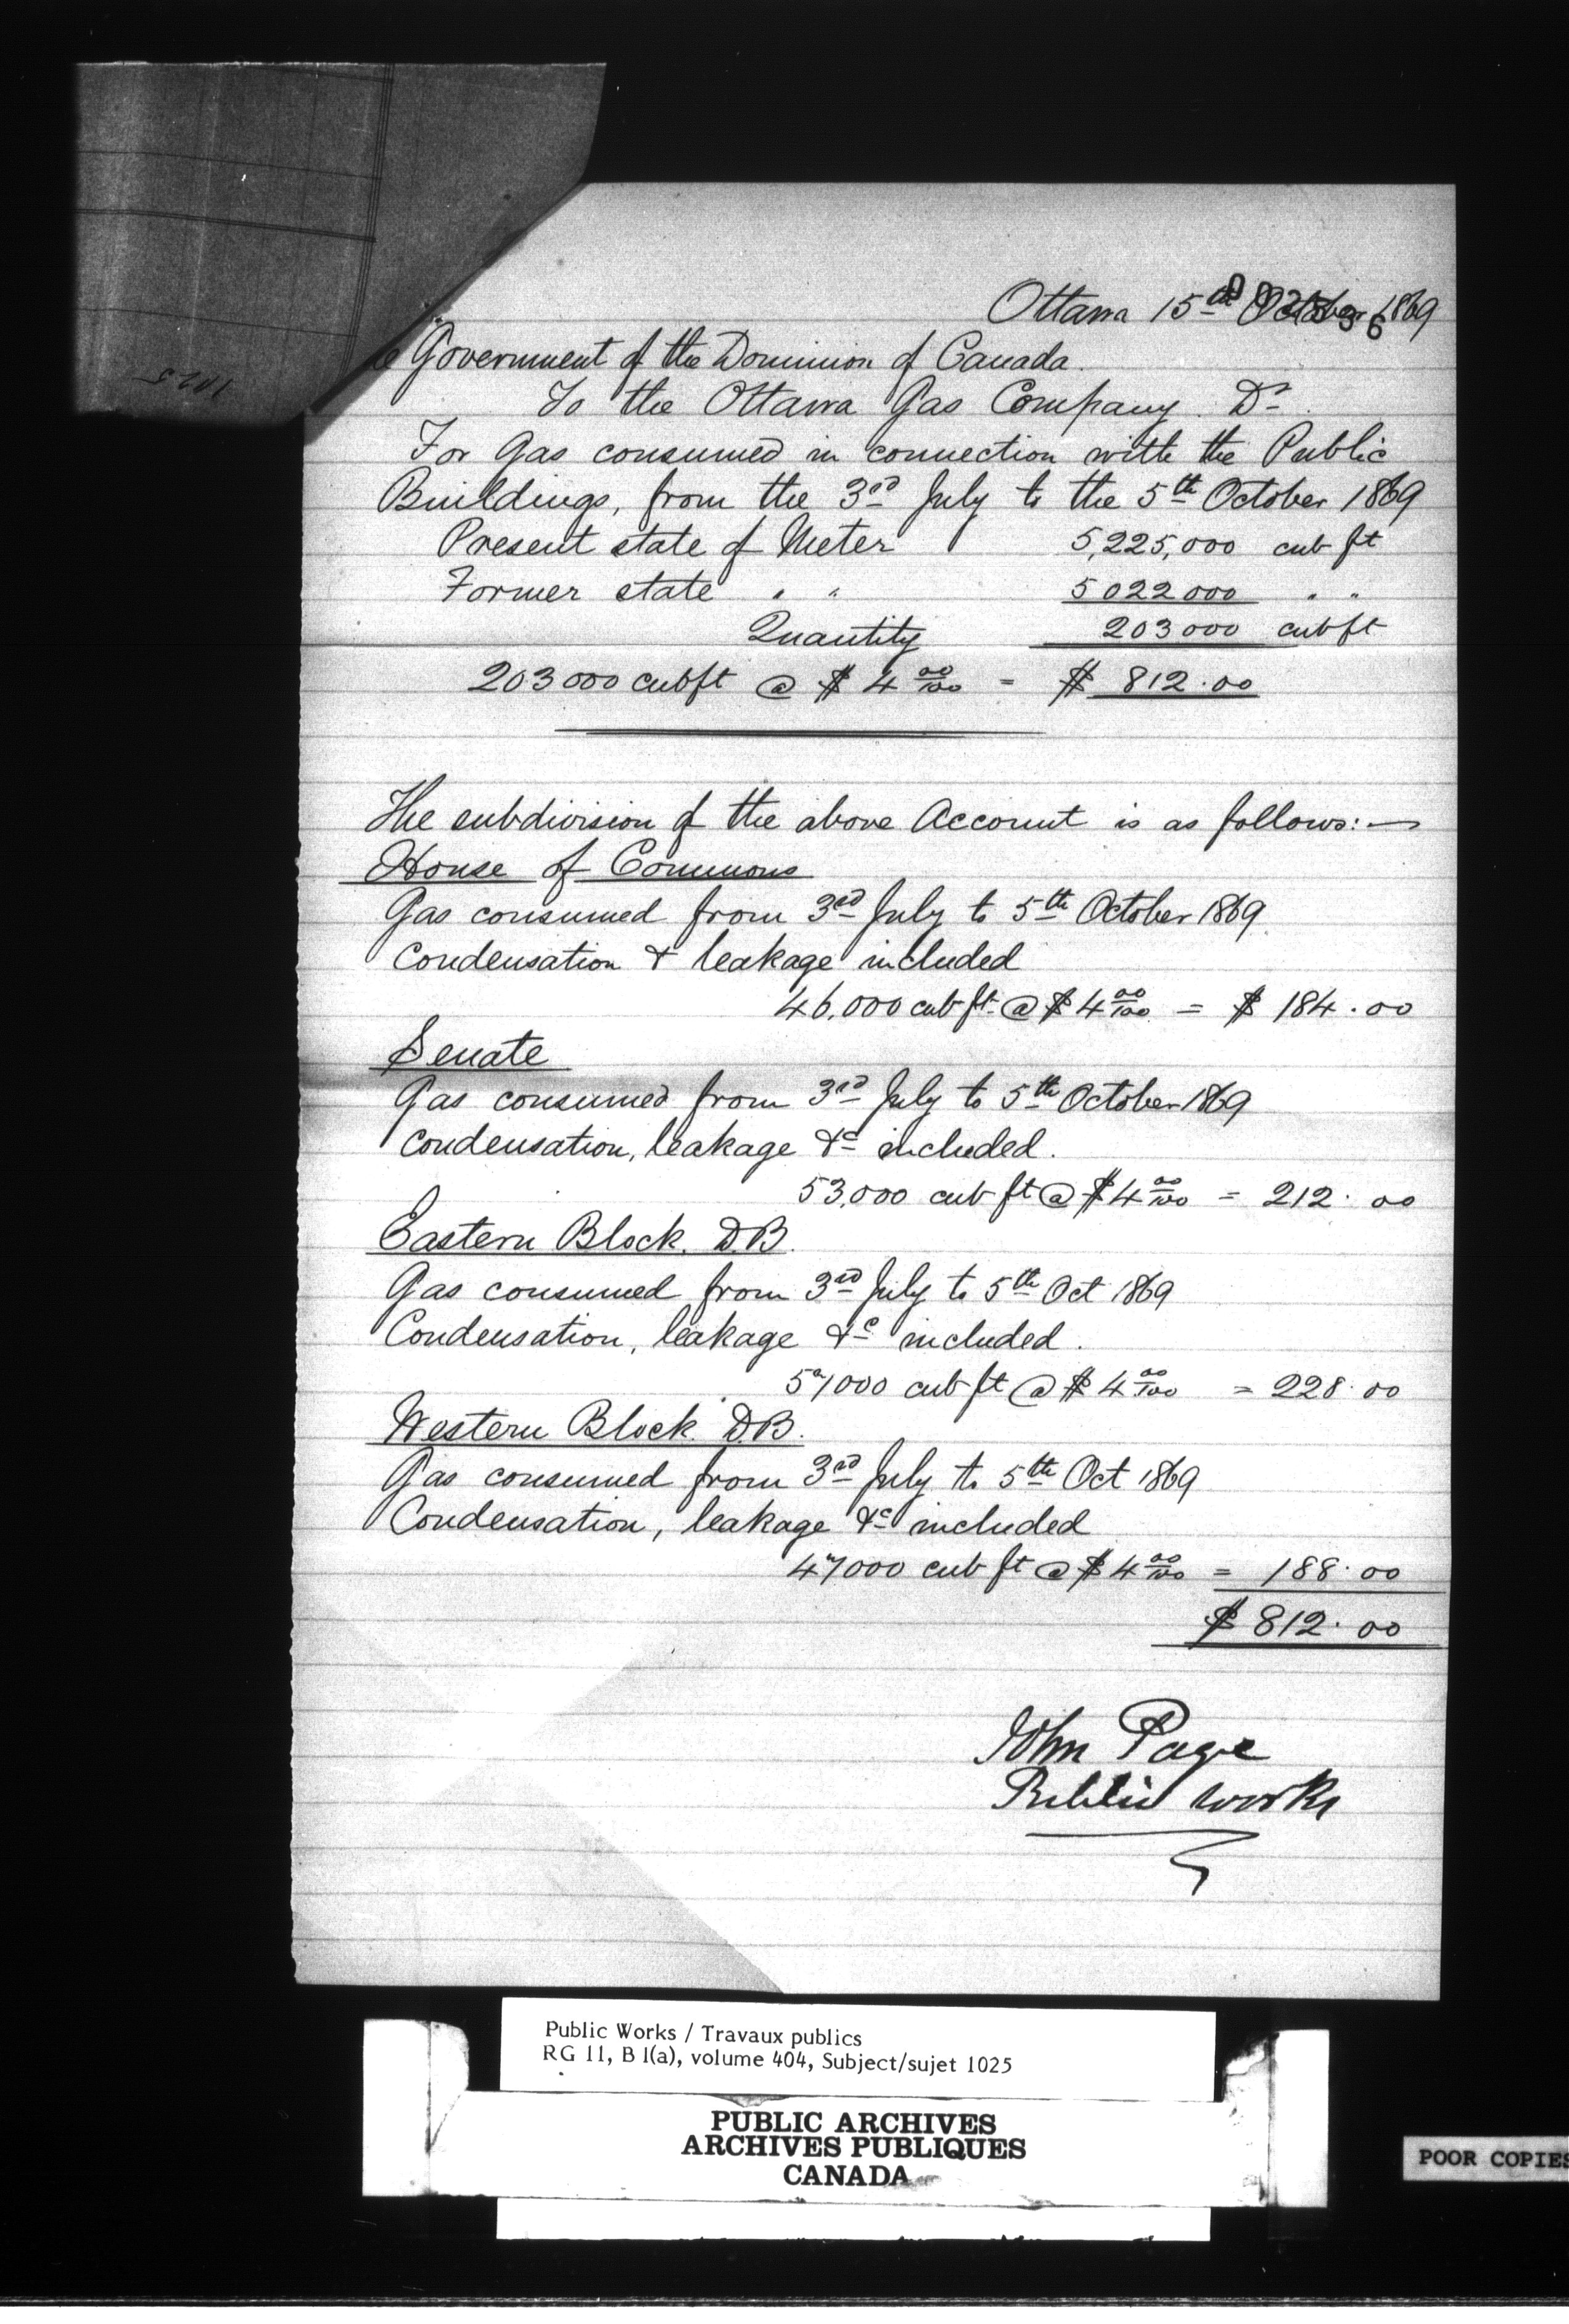 Ottawa 15th October 1869
e Government of the Dominion of Canada.
To the Ottawa Gas Company. Dr
For Gas consumed in connection with the Public
Buildings, from the 3rd July to the 5th October 1869
Present state of Meter 5,225,000 cub ft
Former state " " 5022000 " "
Quantity 203000 cubft
203000 cubft @ $ 4 00/100 = $ 812.00
The subdivision of the above Account is as follows:—
House of Commons
Gas consumed from 3rd July to 5th October 1869
Condensation & leakage included
46,000 cub ft @ $ 4 00/100 = $ 184.00
Senate
Gas consumed from 3rd July to 5th October 1869
Condensation, leakage &c included.
53,000 cub ft @ $ 4 00/100 = 212.00
Eastern Block. D.B.
Gas consumed from 3rd July to 5th Oct 1869
Condensation, leakage &c included.
57000 cub ft @ $ 4 00/100 = 228.00
Western Block. D.B.
Gas consumed from 3rd July to 5th Oct 1869
Condensation, leakage &c included
47000 cub ft @ $ 4 00/100 = 188.00
$ 812.00
John Page
Public Works
Public Works / Travaux publics
RG 11, B 1(a), volume 404, Subject/sujet 1025
PUBLIC ARCHIVES
ARCHIVES PUBLIQUES
CANADA
POOR COPIES
1025